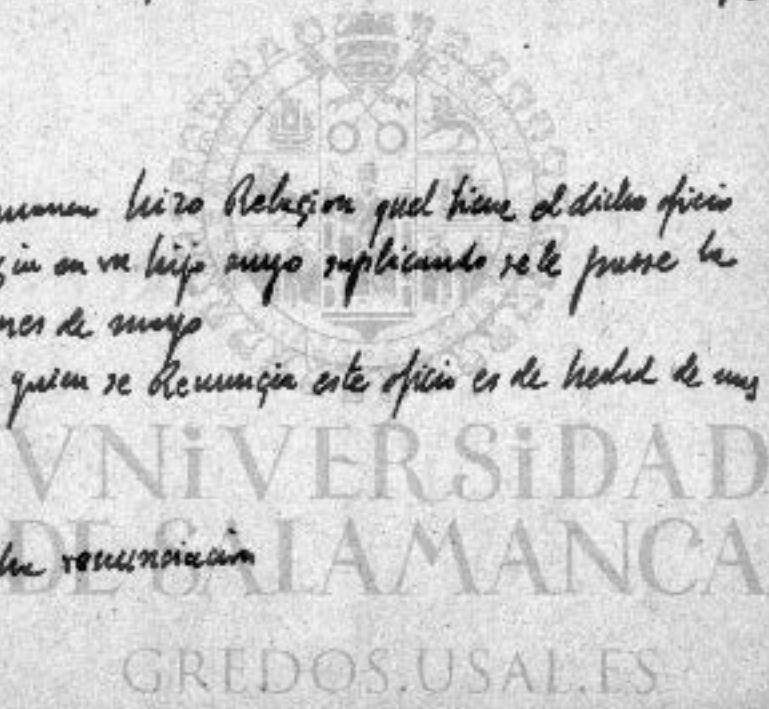 hizo Relaçion quel tiene el dicho ofiçio
en vn hijo suyo suplicando se le passe la
mes de mayo
quien se Renunçia este ofiçio es de hedad de mas
renunciacion
VNiVERSiDAD
DE SALAMANCA
GREDOS.USAL.ES